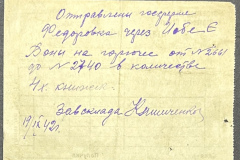 Отправлены госдерне
Федоровка через Кобе Е
Бони на горючее от №2661
до №2740 в количестве
4х книжек
Завсклада
19/IX 42г.